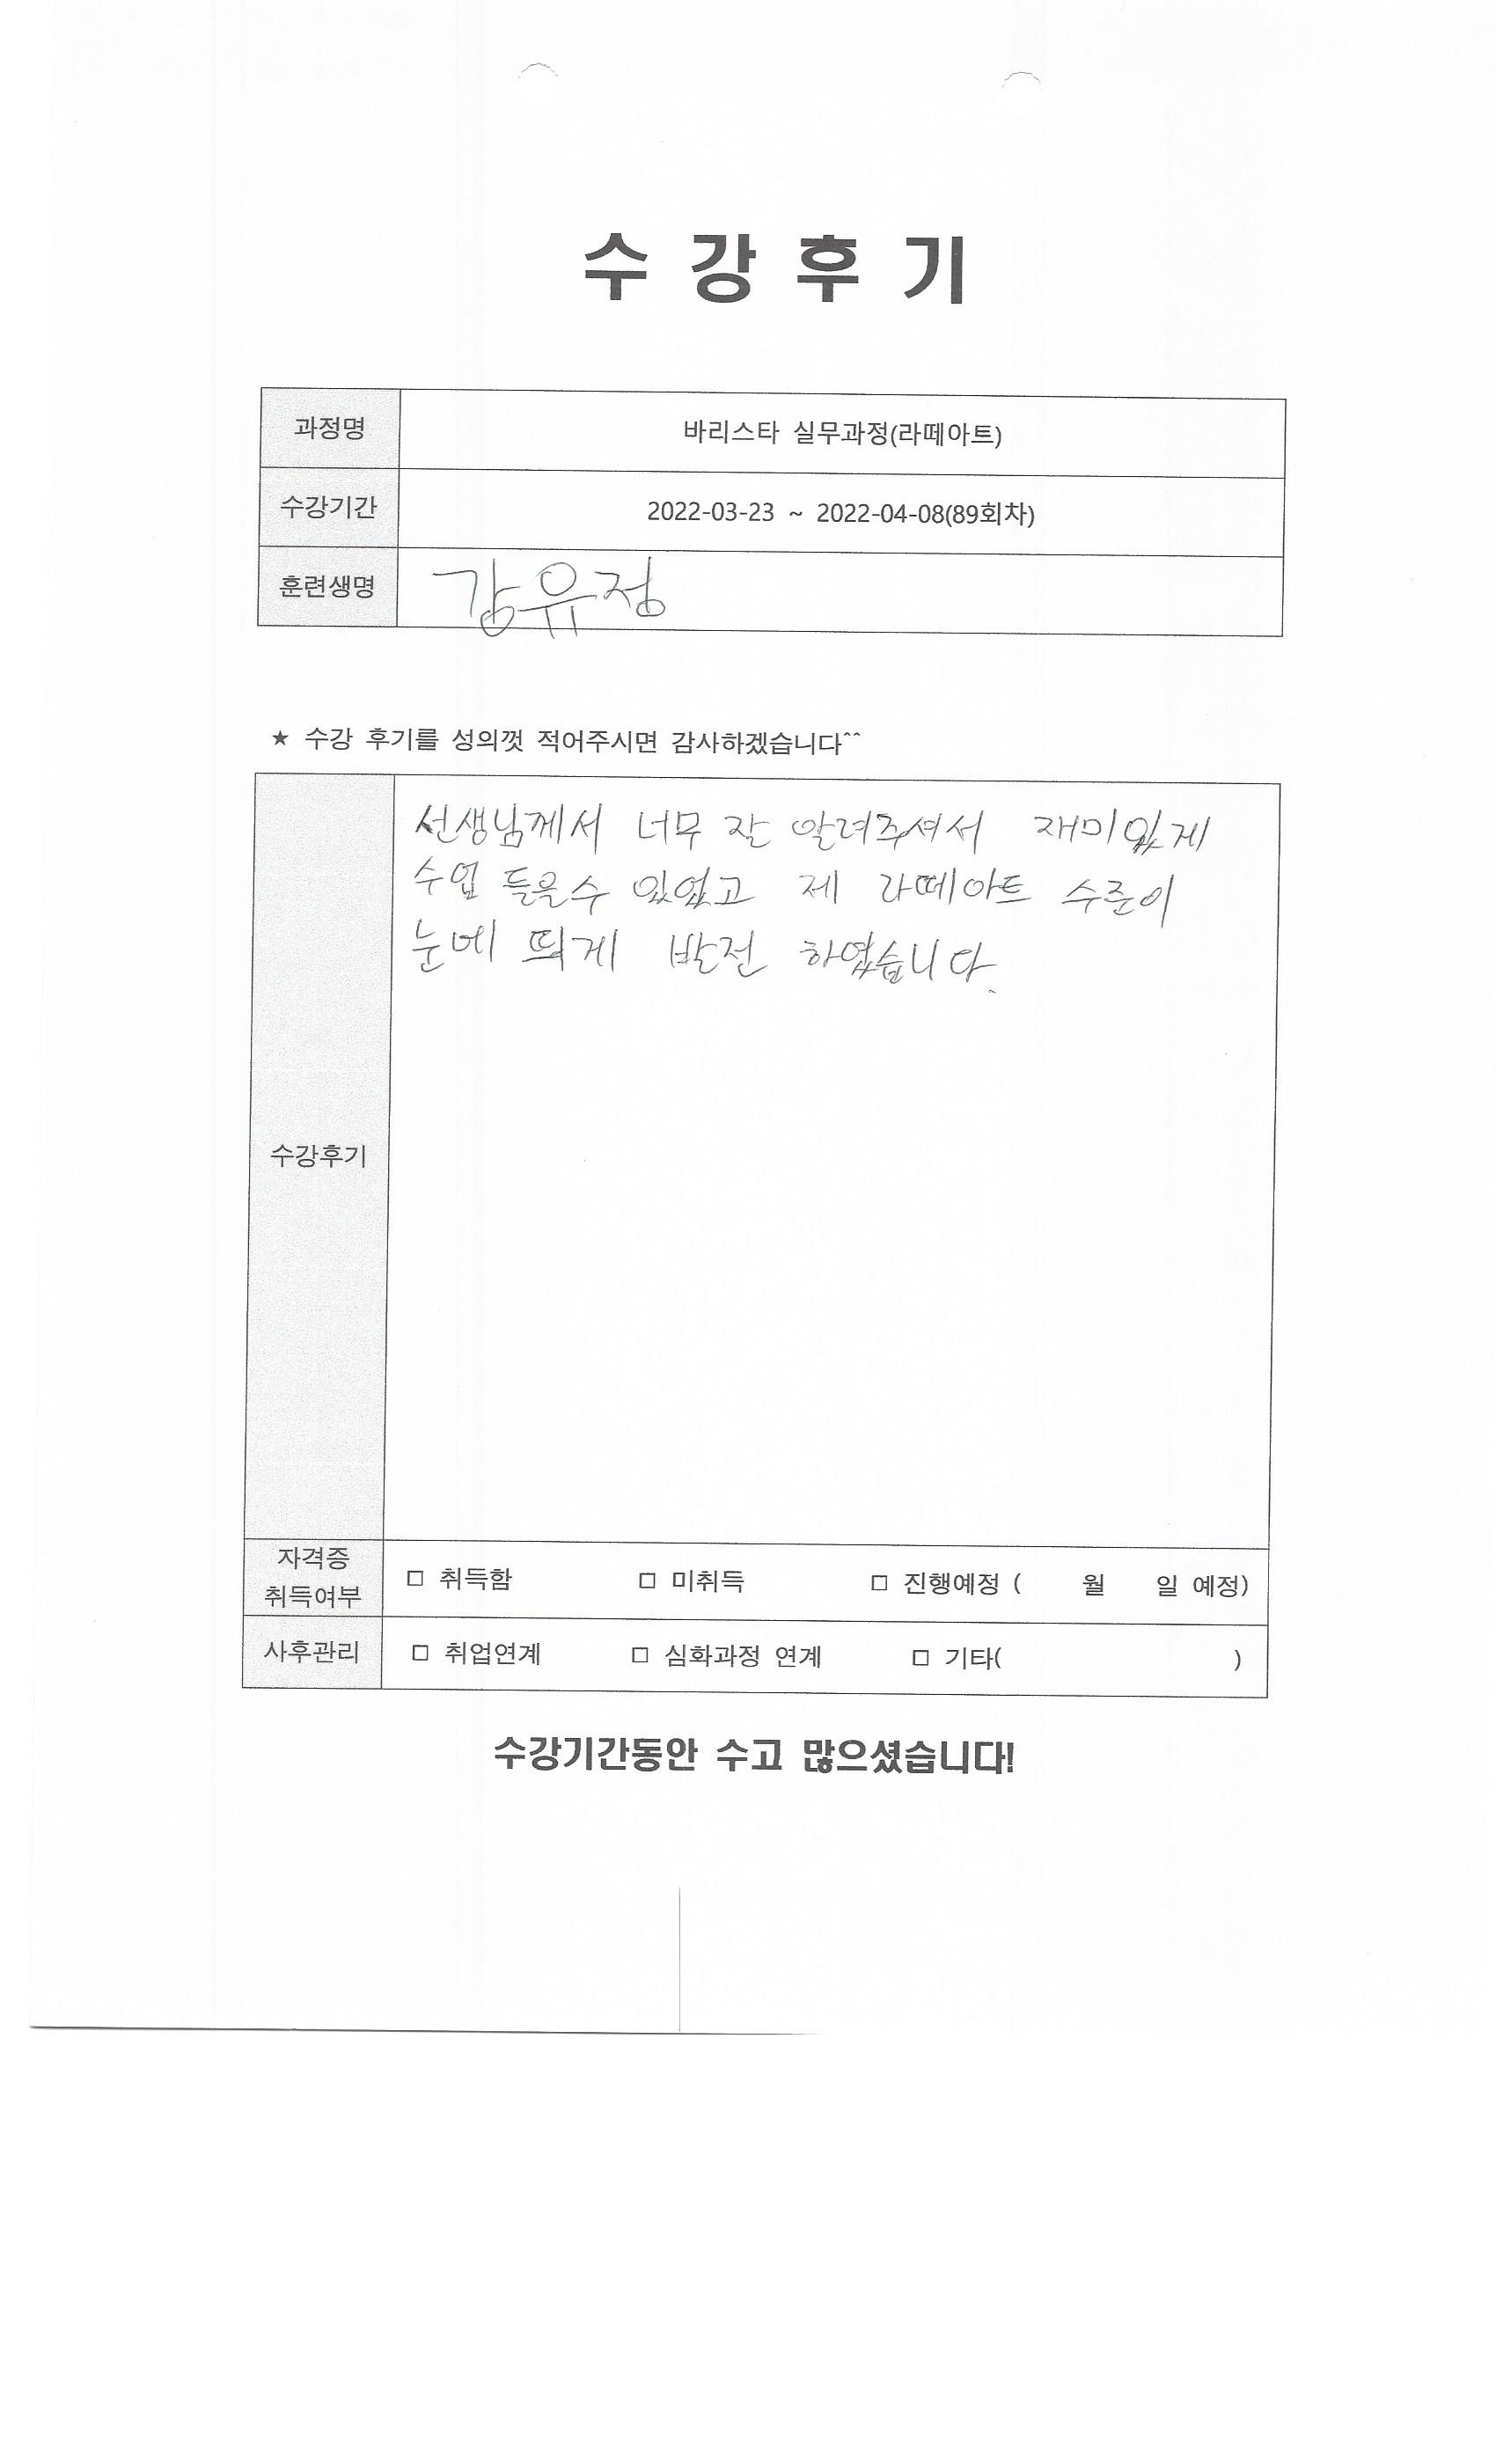 수 강 후 기
과정명 바리스타 실무과정(라떼아트)
수강기간 2022-03-23 ~ 2022-04-08(89회차)
훈련생명 강유정
★ 수강 후기를 성의껏 적어주시면 감사하겠습니다^^
선생님께서 너무 잘 알려주셔서 재미있게
수업 들을수 있었고 제 라떼아트 수준이
눈에 띄게 발전 하였습니다.
수강후기
자격증
취득여부 □ 취득함 □ 미취득 □ 진행예정 ( 월 일 예정)
사후관리 □ 취업연계 □ 심화과정 연계 □ 기타( )
수강기간동안 수고 많으셨습니다!